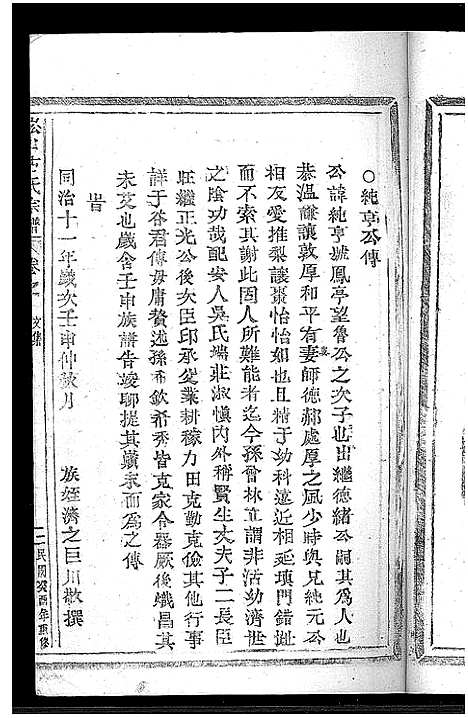 ○純亨公傳
公諱純亨號鳳亭望魯公之次子也出繼德緒公嗣其為人也
恭溫謙讓敦厚和平有婁師德郝處厚之風少時與兄純元公
相友愛推梨讓棗怡怡如也且精于幼科遠近相延填門錯趾
而不索其謝此固人所難能者迄今孫曾林立謂非活幼濟世
之陰功哉配安人吳氏端莊淑慎內外稱賢生丈夫子二長臣
旺繼正光公後次臣印承父業耕稼力田克勤克儉其其他行事
詳于谷君傳毋庸贅述孫希欽希秀皆克家令器厥後熾昌其
未艾也歲舍壬申族譜告竣聊提其巔末而為之傳
旹
同治十一年歲次壬申仲秋月
族姪濟之巨川敬撰
氏宗譜
卷之
文集
二
民國癸酉年重修